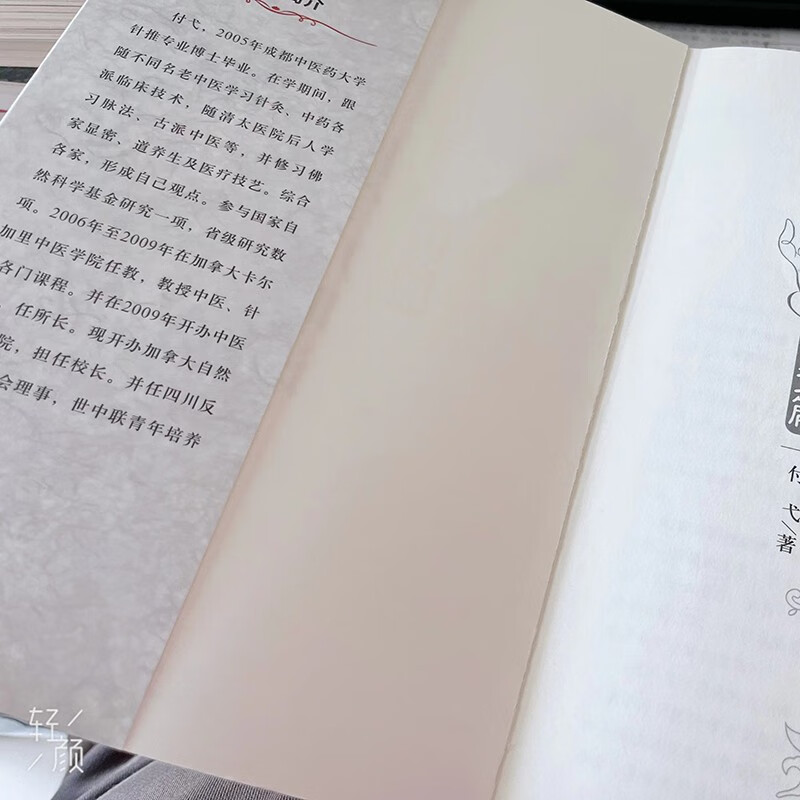 介
付弋，2005年成都中医药大学
针推专业博士毕业。在学期间，跟
随不同名老中医学习针灸、中药各
派临床技术，随清太医院后人学
习脉法、古派中医等，并修习佛
家显密、道养生及医疗技艺。综合
各家，形成自己观点。参与国家自
然科学基金研究一项，省级研究数
项。2006年至2009年在加拿大卡尔
加里中医学院任教，教授中医、针
各门课程。并在2009年开办中医
，任所长。现开办加拿大自然
院，担任校长。并任四川反
会理事，世中联青年培养
付弋/著
轻/
/颜